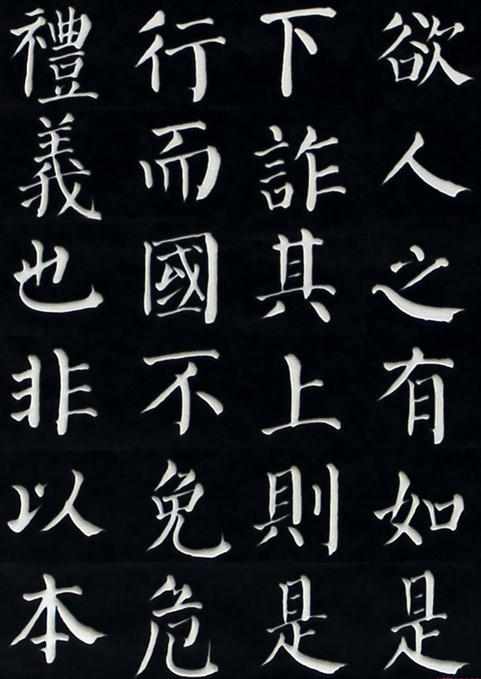 欲人之有如是
下詐其上則是
行而國不免危
禮義也非以本